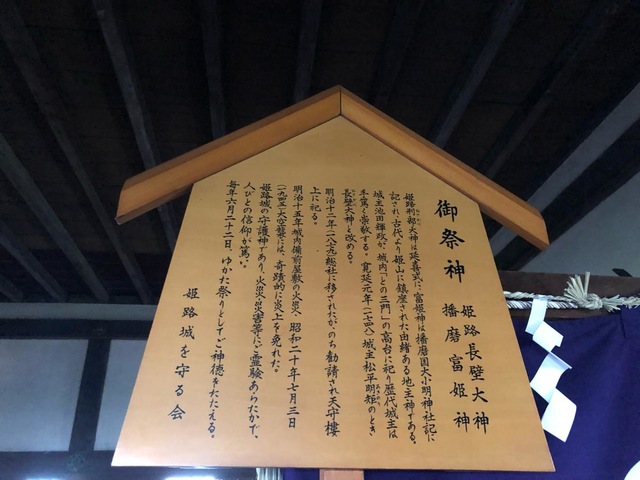 御祭神
姫路長壁大神
播磨富姫神
姫路刑部大神は延喜式に、富姫神は播磨国大小明神社記に
記され、古代より姫山に鎮座された由緒ある地主神である。
城主池田輝政が、城内「との三門」の高台に祀り歴代城主は
手篤く崇敬する。寛延元年(一七四八)城主松平明矩のとき
長壁大神と改める。
明治十二年(一八七九)総社に移されたが、のち勧請され天守楼
上に祀る。
明治十五年城内備前屋敷の火災、昭和二十年七月三日
(一九四五)大空襲には、奇蹟的に炎上を免れた。
姫路城の守護神であり、火災・災害等にご霊験あらたかで、
人びとの信仰が篤い。
毎年六月二十二日、ゆかた祭りとしてご神徳をたたえる。
姫路城を守る会